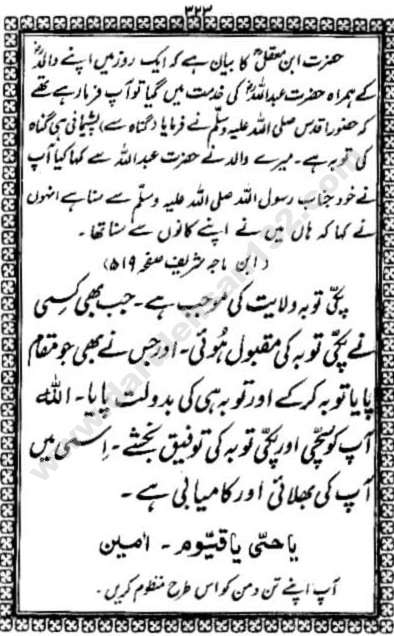 ۳۲۳
حضرت ابن معقلؓ کا بیان ہے کہ ایک روز میں اپنے والدؓ
کے ہمراہ حضرت عبداللہؓ کی خدمت میں گیا تو آپ فرما رہے تھے
کہ حضور اقدس صلی اللہ علیہ وسلّم نے فرمایا (گناہ سے) پشیمانی ہی گناہ
کی توبہ ہے ۔ میرے والد نے حضرت عبداللہ سے کہا کیا آپ
نے خود جناب رسول اللہ صلی اللہ علیہ وسلّم سے سنا ہے انہوں
نے کہا کہ ہاں میں نے اپنے کانوں سے سنا تھا ۔
(ابن ماجہ شریف صفحہ ۵۱۹)
پکّی توبہ ولایت کی موجب ہے ۔ جب بھی کسی
نے پکّی توبہ کی مقبول ہُوئی ۔ اور جس نے بھی جو مقام
پایا توبہ کر کے اور توبہ ہی کی بدولت پایا ۔ اللہ
آپ کو سچّی اور پکّی توبہ کی توفیق بخشے ۔ اِسی میں
آپ کی بھلائی اور کامیابی ہے ۔
یا حیّ یا قیّوم ۔ اٰمین
آپ اپنے تن و من کو اس طرح منظوم کریں ۔